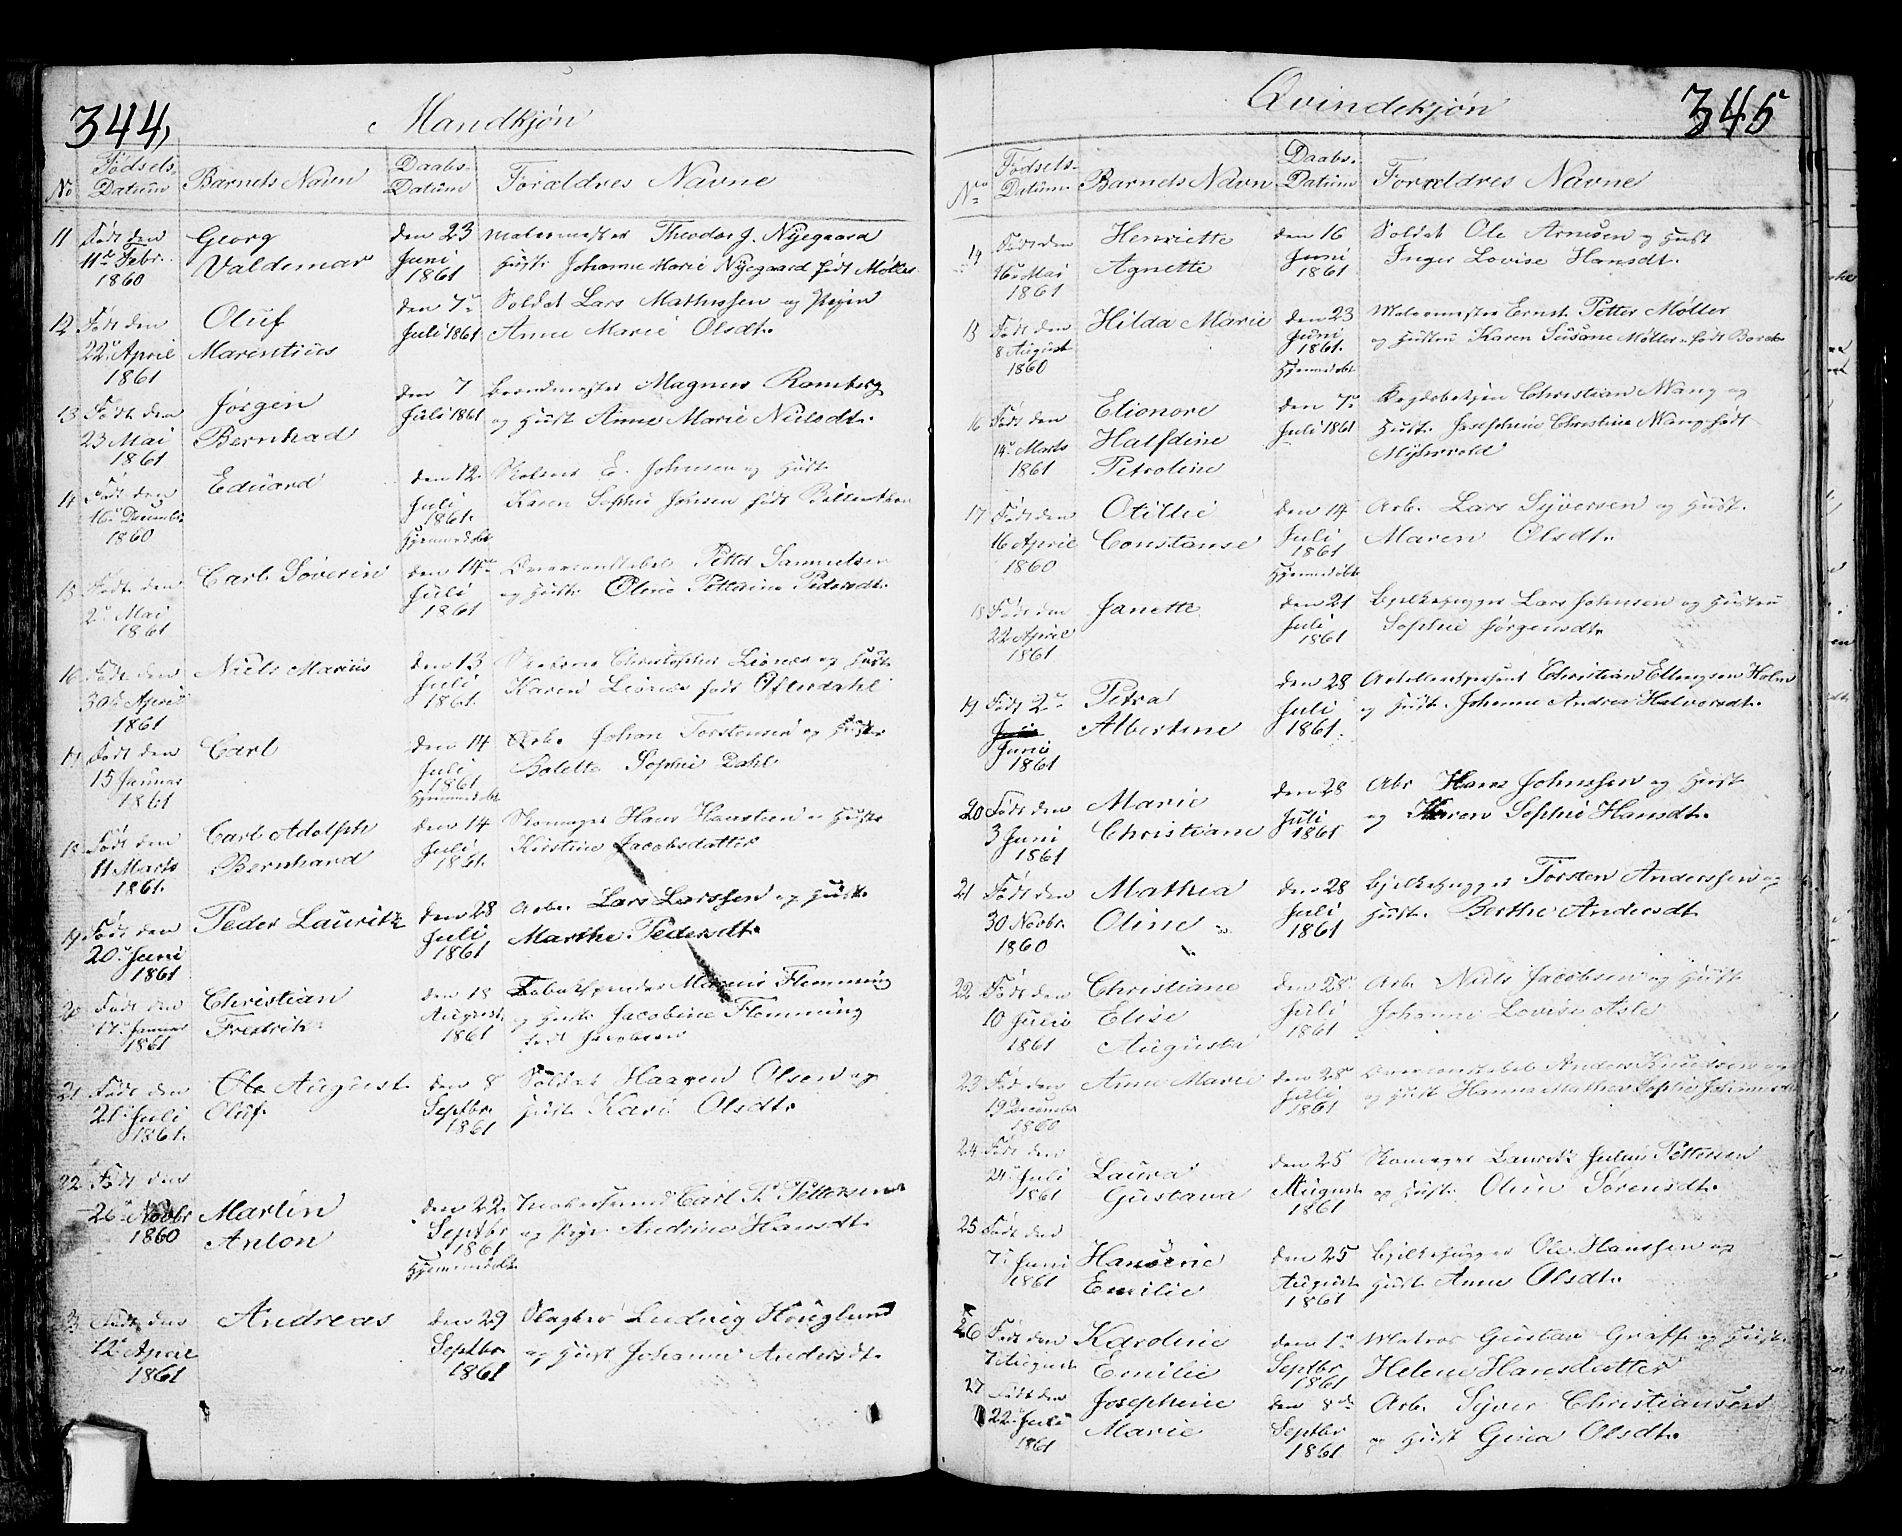 344,
Mandkjøn
No
Fødsels-
Datum
Barnets Navn
Daabs-
Datum
Forældres Navne
11 Født den
11te Febr.
1860
Georg
Valdemar
den 23
Juni
1861
Malermester Theodor J. Nyegaard
Hustr. Johanne Marie Nyegaard født Møller
12 Født den
22de April
1861
Oluf
Marentius
den 7de
Juli 1861
Soldat Lars Mathissen og Pigen
Anne Marie Olsdt.
13 Født den
23 Mai
1861
Jørgen
Bernhad
den 7
Juli 1861
Magnus Romberg
og Hust Anne Marie Nielsdt.
14 Født den
16de December
1860
Eduard
den 12
Juli
1861.
Hjemmedøbt
E. Johnsen og Hust
Karen Sophie Jonsen født
15 Født den
2de Mai
1861
Carl Severin
den 14de
Juli
1861
Overconstabel Petter Samuelsen
og Hustr. Oline Pettrine Pedersdt.
16 Født den
30de April
1861
Niels Marius
den 13
Juli
1861.
Christopher Lionæs og Hustr.
Karen Lionæs født Ofterdahl
17 Født den
15 Januar
1861
Carl
den 14
Juli
1861
Hjemmedøbt
Arb. Johan Torstensen og Hustr
Bolette Sophie Dahl
18 Født den
11 Marts
1861.
Carl Adolph
Bernhard
den 14
Juli
1861.
Skomager Hans Hanssen og Hustr
Kirstine Jacobsdatter
19 Født den
20de Juni
1861
Peder Lauritz
den 28
Juli
1861
Arb. Lars Larssen og Hust.
Marthe Pedersdt.
20 Født den
17de Januar
1861
Christian
Fredrik
den 18
August
1861
Marius Flemming
og Hustr. Jacobine Flemming
født Jacobsen
21 Født den
21de Juli
1861.
Ole August
Oluf
den 8
Septbr
1861
Soldat Haagen Olsen og
Hust. Kari Olsdt.
22 Født den
26de Novbr
1860
Martin
Anton
den 22
Septbr
1861
Hjemmedøbt
Carl P. Pettersen
og Pige Andrine Hansdt.
23 Født den
12te April
1861
Andreas
den 29
Septbr
1861
Slagter Ludvig Houglund
og Hust Johanne Andersdt.
345
Qvindekjøn
No
Fødsels-
Datum
Barnets Navn
Daabs-
Datum
Forældres Navne
14 Født den
16de Mai
1861
Henriette
Agnette
den 16
Juni
1861
Soldat Ole Arnesen og Hust
Inger Lovise Hansdt.
15 Født den
8 August
1860
Hilda Marie
den 23
Juni
1861.
Hjemmedøbt
Malermester Ernst Petter Møller
og Hustru Karen Susane Møller født
16 Født den
14de Marts
1861
Elionore
Halfdine
Petroline
den 7de
Juli 1861
Christian Wang og
Hust. Josephine Christine Wang født
Myhrvold
17 Født den
16 April
1860
Otillie
Constanse
den 14
Juli
1861
Hjemmedøbt
Arb. Lars Syversen og Hust.
Maren Olsdt.
18 Født den
22 April
1861
Janette
den 21
Juli
1861
Bjelkehugger Lars Johnsen og Hustru
Sophie Jørgensdt.
19 Født 2de
Juni
1861
Petra
Albertine
den 28
Juli
1861.
Christian Ellingsen Holm
og Hust. Johanne Andrea Halvorsdt.
20 Født den
3 Juni
1861
Marie
Christiane
den 28
Juli
1861
Abr Hans Johnssen og Hust
og Karen Sophie Hansdt.
21 Født den
30 Novbr.
1860
Mathea
Oline
den 28
Juli
1861
Bjelkehugger Torsten Anderssen og
Hust. Berthe Andersdt
22 Født den
10 Juni
1861
Christiane
Elise
Augusta
den 28de
Juli
1861
Arb. Niels Jacobsen og Hust
Johanne Lovise Asle
23 Fød den
19 December
1860
Anne Marie
den 28de
Juli
1861
Overconstabel Anders Knudsen og
og Hust Hanna Mathea Sophie
24 Født den
24de Juli
1861
Laura
Gustava
den 25
August
1861
Skomager Lauritz Julius Pettersen
og Hust. Oline Sørensdt.
25 Født den
7de Juni
1861
Hansine
Emilie
den 25
August
1861
Bjelkehugger Ole Hanssen og
Hust Anne Olsdt.
26 Født den
7 August
Karoline
Emilie
den 1te
Septbr
1861
Matros Gustav Graff og Hustr
Helene Hansdatter
27 Født den
22de Juli
1861
Josephine
Marie
den 8de
Septbr
1861
Arb. Syver Christiansen
og Hust Gina Olsdt.